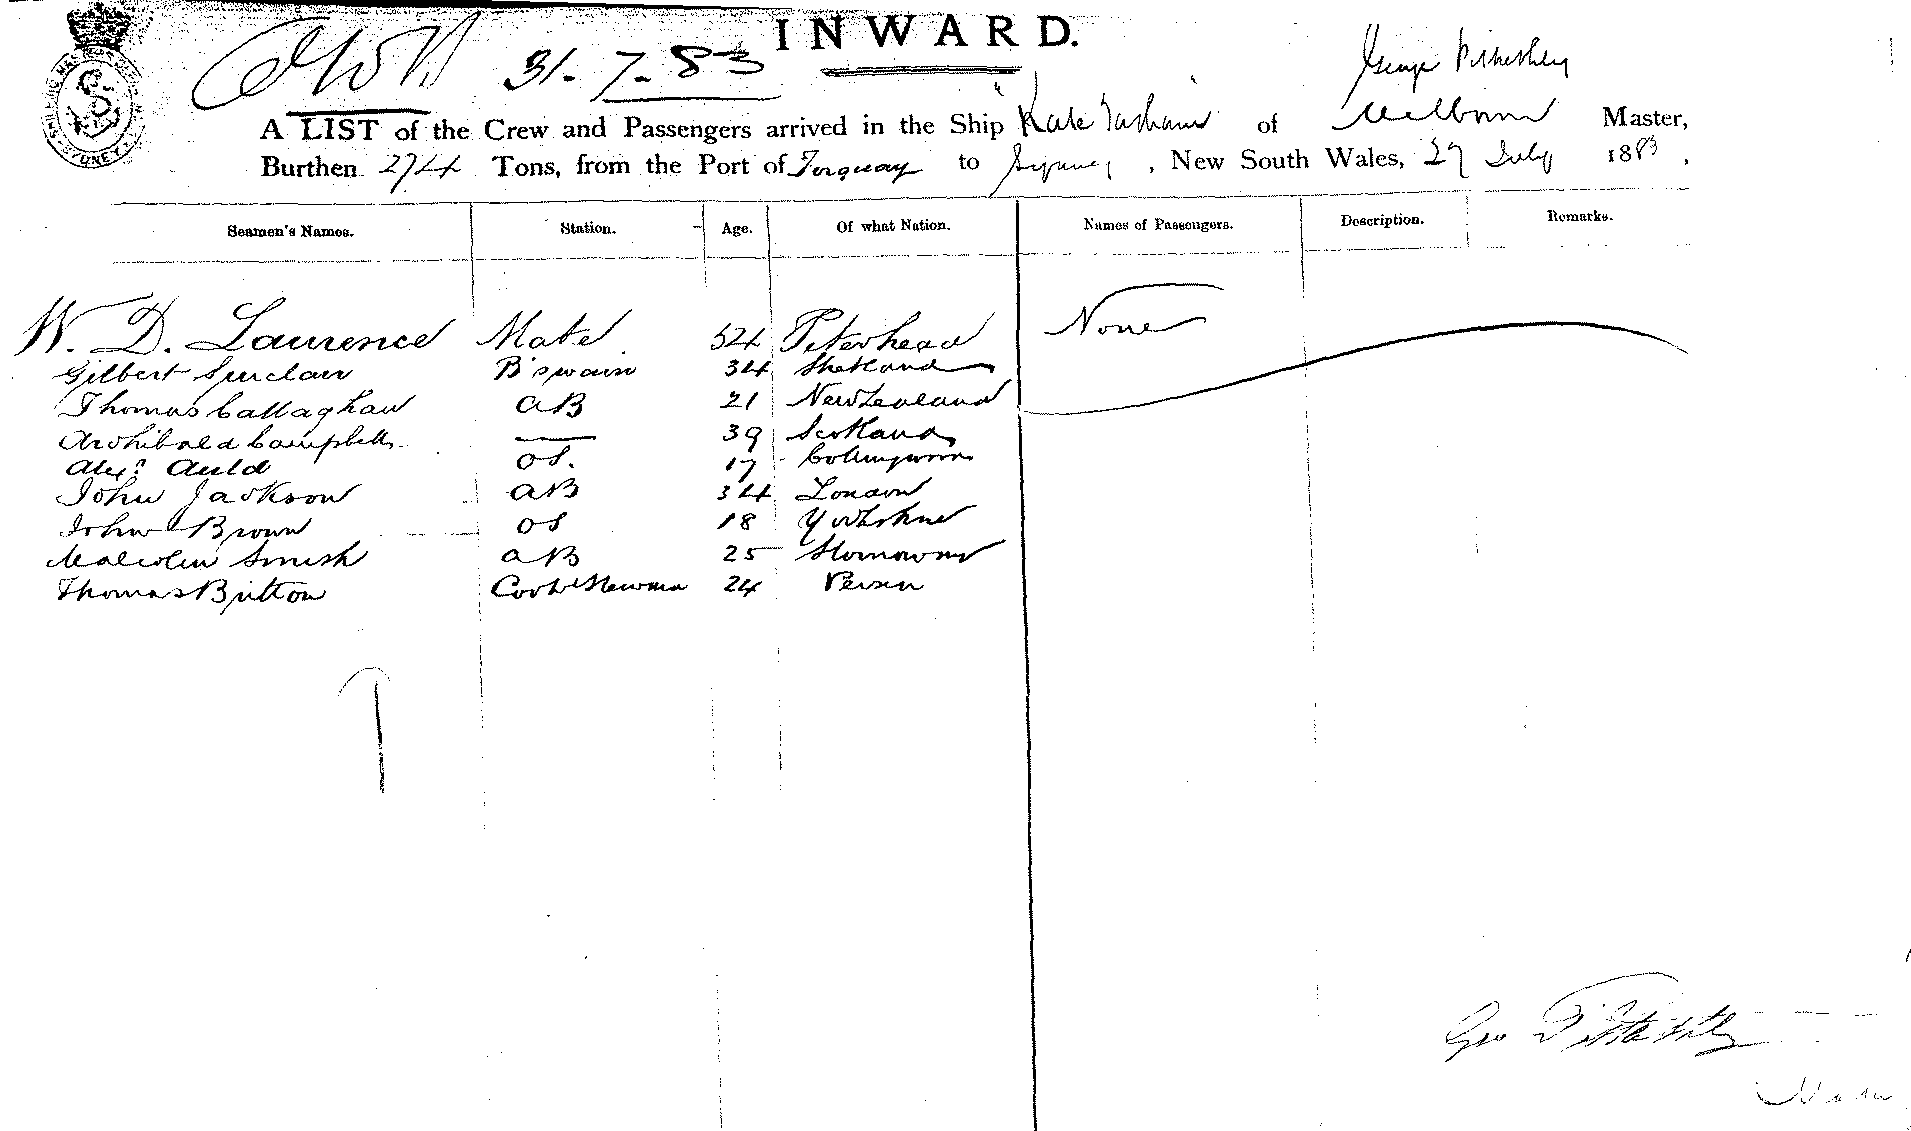 INWARD.
31-7-83
George
A LIST of the Crew and Passengers arrived in the Ship "Kate Tatham" of Melbourne Master,
Burthen 274 Tons, from the Port of Torquay to Sydney, New South Wales, 27 July 1883.
Seamen's Names. Station. Age. Of what Nation. Names of Passengers. Description. Remarks.
W. D. Laurence Mate 54 Peterhead None
Gilbert Sinclair B'swain 34 Shetland
Thomas Callaghan AB 21 New Zealand
Archibald Campbell — 39 Scotland
Alexr Auld OS. 17 Collingwood
John Jackson AB 34 London
John Brown OS 18 Yorkshire
Malcolm Smish AB 25 Stornoway
Thomas Britton Cook & Steward 24
Geo